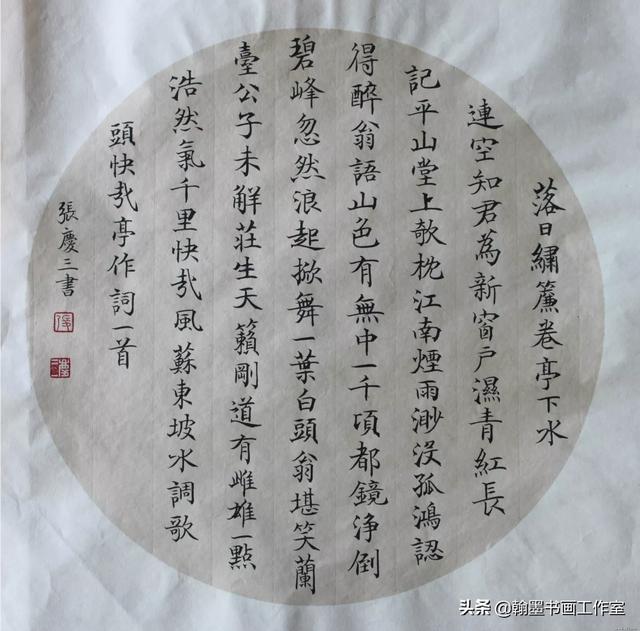 落日繡簾卷亭下水
連空知君為新窗戶濕青紅長
記平山堂上欹枕江南煙雨渺沒孤鴻認
得醉翁語山色有無中一千頃都鏡淨倒
碧峰忽然浪起掀舞一葉白頭翁堪笑蘭
臺公子未觧莊生天籟剛道有雌雄一點
浩然氣千里快哉風蘇東坡水調歌
頭快哉亭作詞一首
張慶三書
头条 @翰墨书画工作室